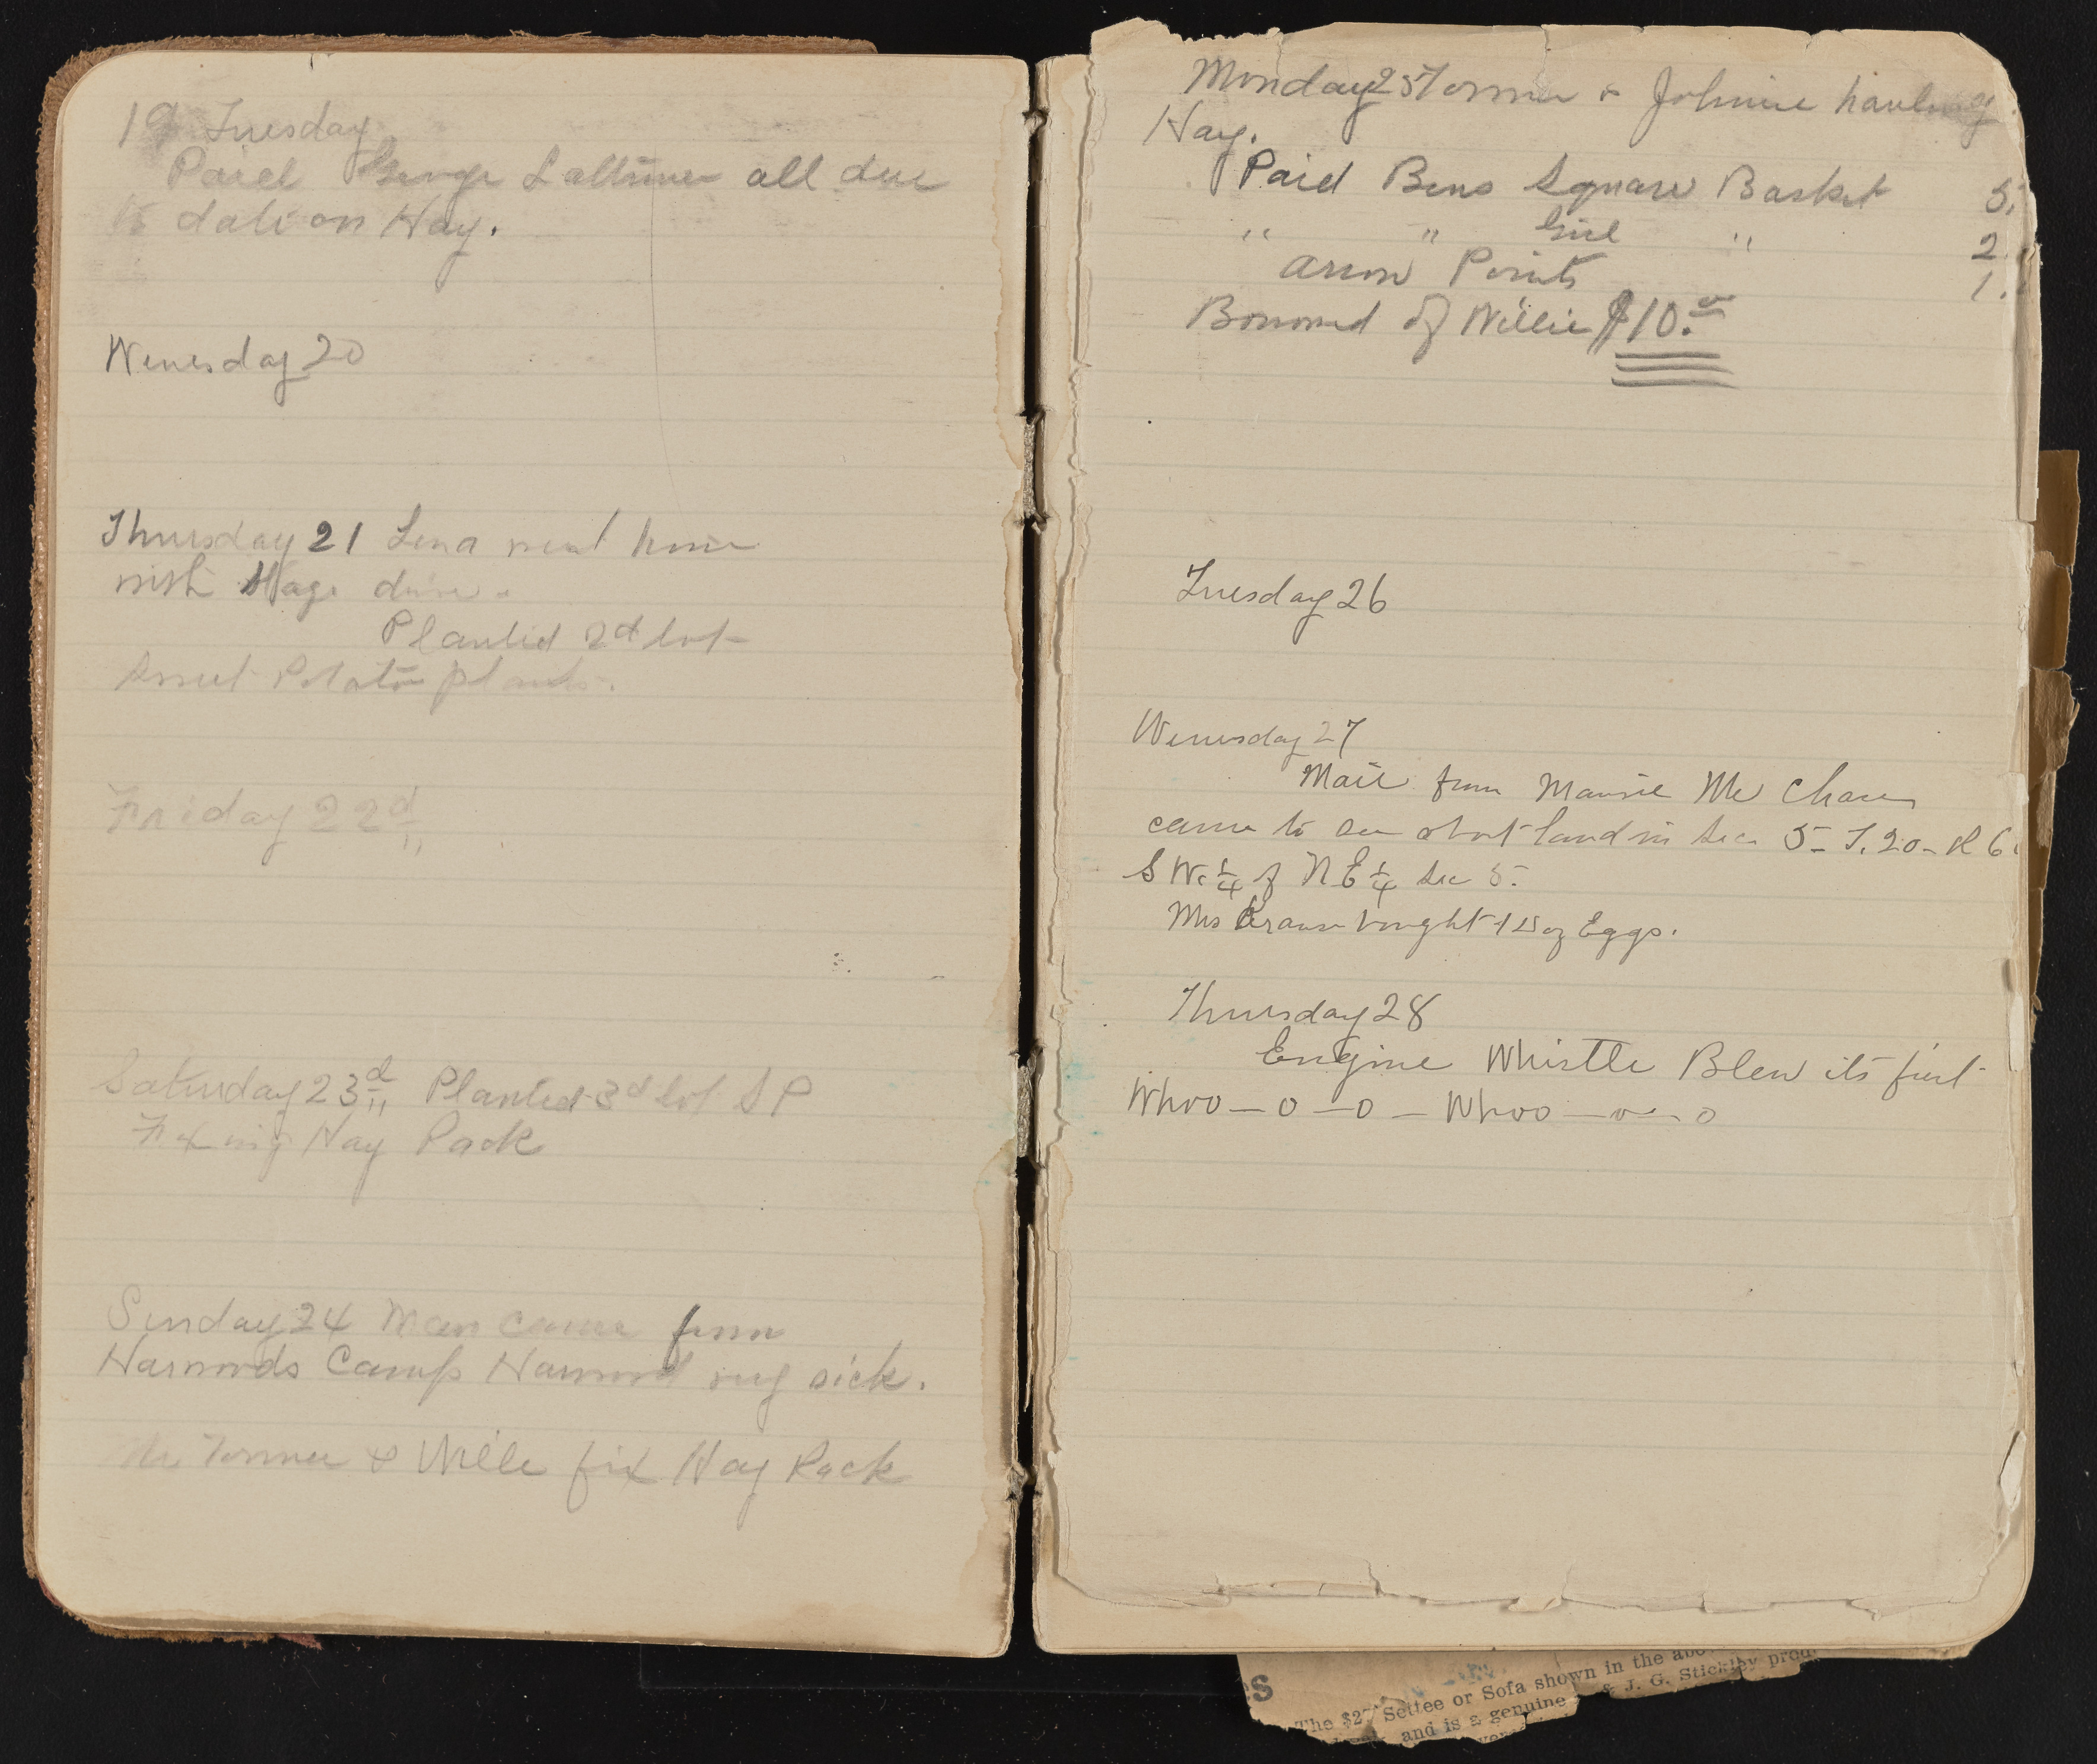 19 Tuesday
Paid George Lattimer all due
to date on Hay.
Wenesday 20
Thursday 21 Lena went home
with Stage driver.
Planted 2d lot
Sweet Potatoe plants.
Friday 22d
Saturday 23d Planted 3d lot S P
Fixing Hay Rack
Sunday 24 Man came from
Harwoods Camp Harwood very sick.
Mr Tormer & Willie fix Hay Rack
Monday 25 Tormer & Johnie hauling
Hay.
Paid Bens Square Basket 5.
" " Girl " 2.
Arrow Points 1.
Borrowed of Willie $10.00
Tuesday 26
Wenesday 27
Mail from Mr Chase
came to see about land in Sec. 5 - T. 20 - R 6
S W. 1/4 of N E 1/4 Sec 5.
Mrs bought 1 Doz Eggs.
Thursday 28
Engine Whistle Blew its first
Whoo — o — o — Whoo — o — o
S
The $27 Settee or Sofa shown in the
and is a genuine & J. G. Stickley